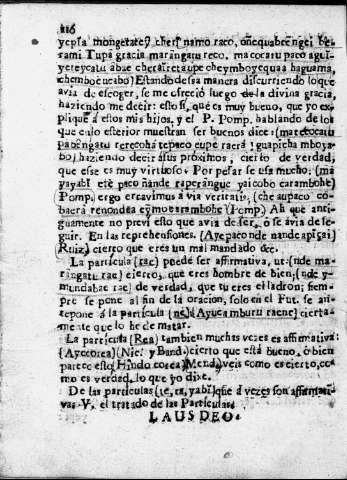 216
yepĩa mongetatey̆ cheru̇ namo raco, oñequabee̊ngei be-
rami Tupã gracia marãngatu reco, ma cocatu paco agui
yereycatu abae cherañ etaupe cheymboyequaa haguama,
chemboè ucabo) Estando dessa manera discurriendo lo que
avia de escoger, se me ofreciò luego de la divina gracia,
haziendo me decir: esto sì, que es muy bueno, que yo ex-
plique á estos mis hijos, y el P. Pomp. hablando de los
que en lo esterior muestran ser buenos dice: (ma etocatu
pabêngatu rerecohá tepaco eupe raerà! guapicha mboya-
bo) haziendo decir ásus proximos, cierto de verdad,
que ese es muy virtuoso. Por pesar se usa mucho: (mà
yayabì etè paco ñande raperãngue yaicobo carambohe)
Pomp. ergo erravimus á via veritatis, (che aupaco co-
baerá renondea eỹmo carambohe) (Pomp.) Ah que anti-
guamente no previ esto que avia de ser, ó se avia de se-
guir. En las reprehensiones. (Aye paco nde nande apiçai)
Ruiz) cierto que eres un mal mandado &c.
La particula (rae) puede ser affirmativa, ut: (nde ma-
rángatu rae) cierto, que eres hombre de bien; (nde y-
mundabae rae) de verdad, que tu eres el ladron; siem-
pre se pone al fin de la oracion, solo en el Fut. se an-
tepone á la particula (ne) Ayuca mburu raene) cierta-
mente que lo he de matar.
La particula (Rea) tambien muchas vezes es affirmativa:
(Aye corea) (Nic. y Band.) cierto que está bueno, ò bien
parece esto, Hindo corea) Mend. veis como es cierto, co-
mo es verdad, lo que yo dixe.
De las particulas (te, ra, yabi) que á vezes son affirmati-
vas V. el tratado de las Particulas.
LAUS DEO.